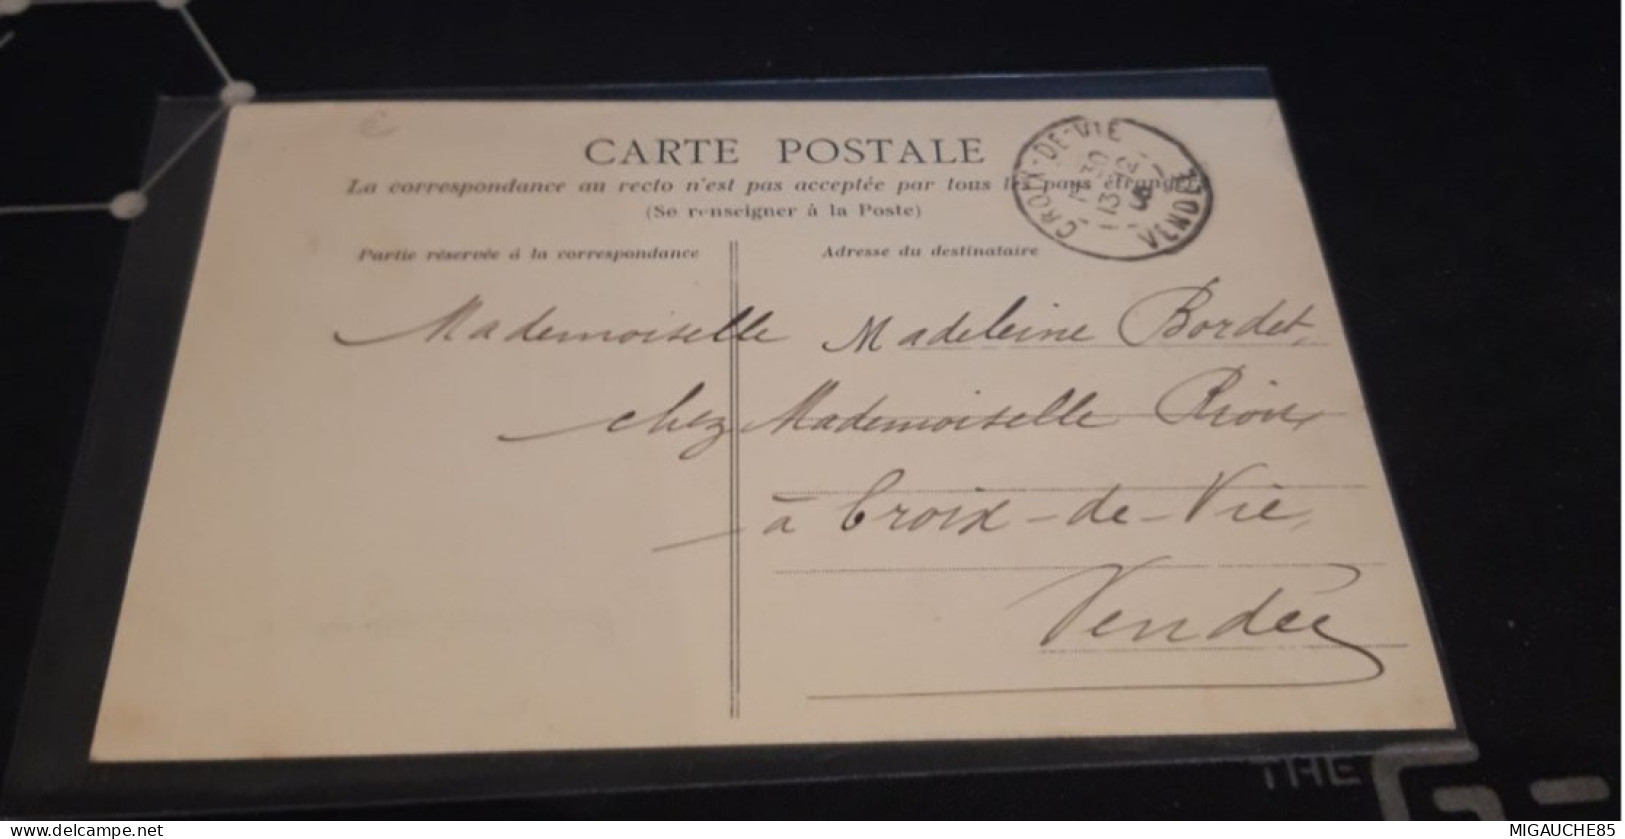 CARTE POSTALE
La correspondance au recto n'est pas acceptée par tous les pays étrangers
(Se renseigner à la Poste)
CROIX-DE-VIE
VENDÉE
13
Partie réservée à la correspondance
Adresse du destinataire
Mademoiselle Madeleine Bordet,
chez Mademoiselle
à Croix-de-Vie,
Vendée
THE G-
delcampe.net
MIGAUCHE85